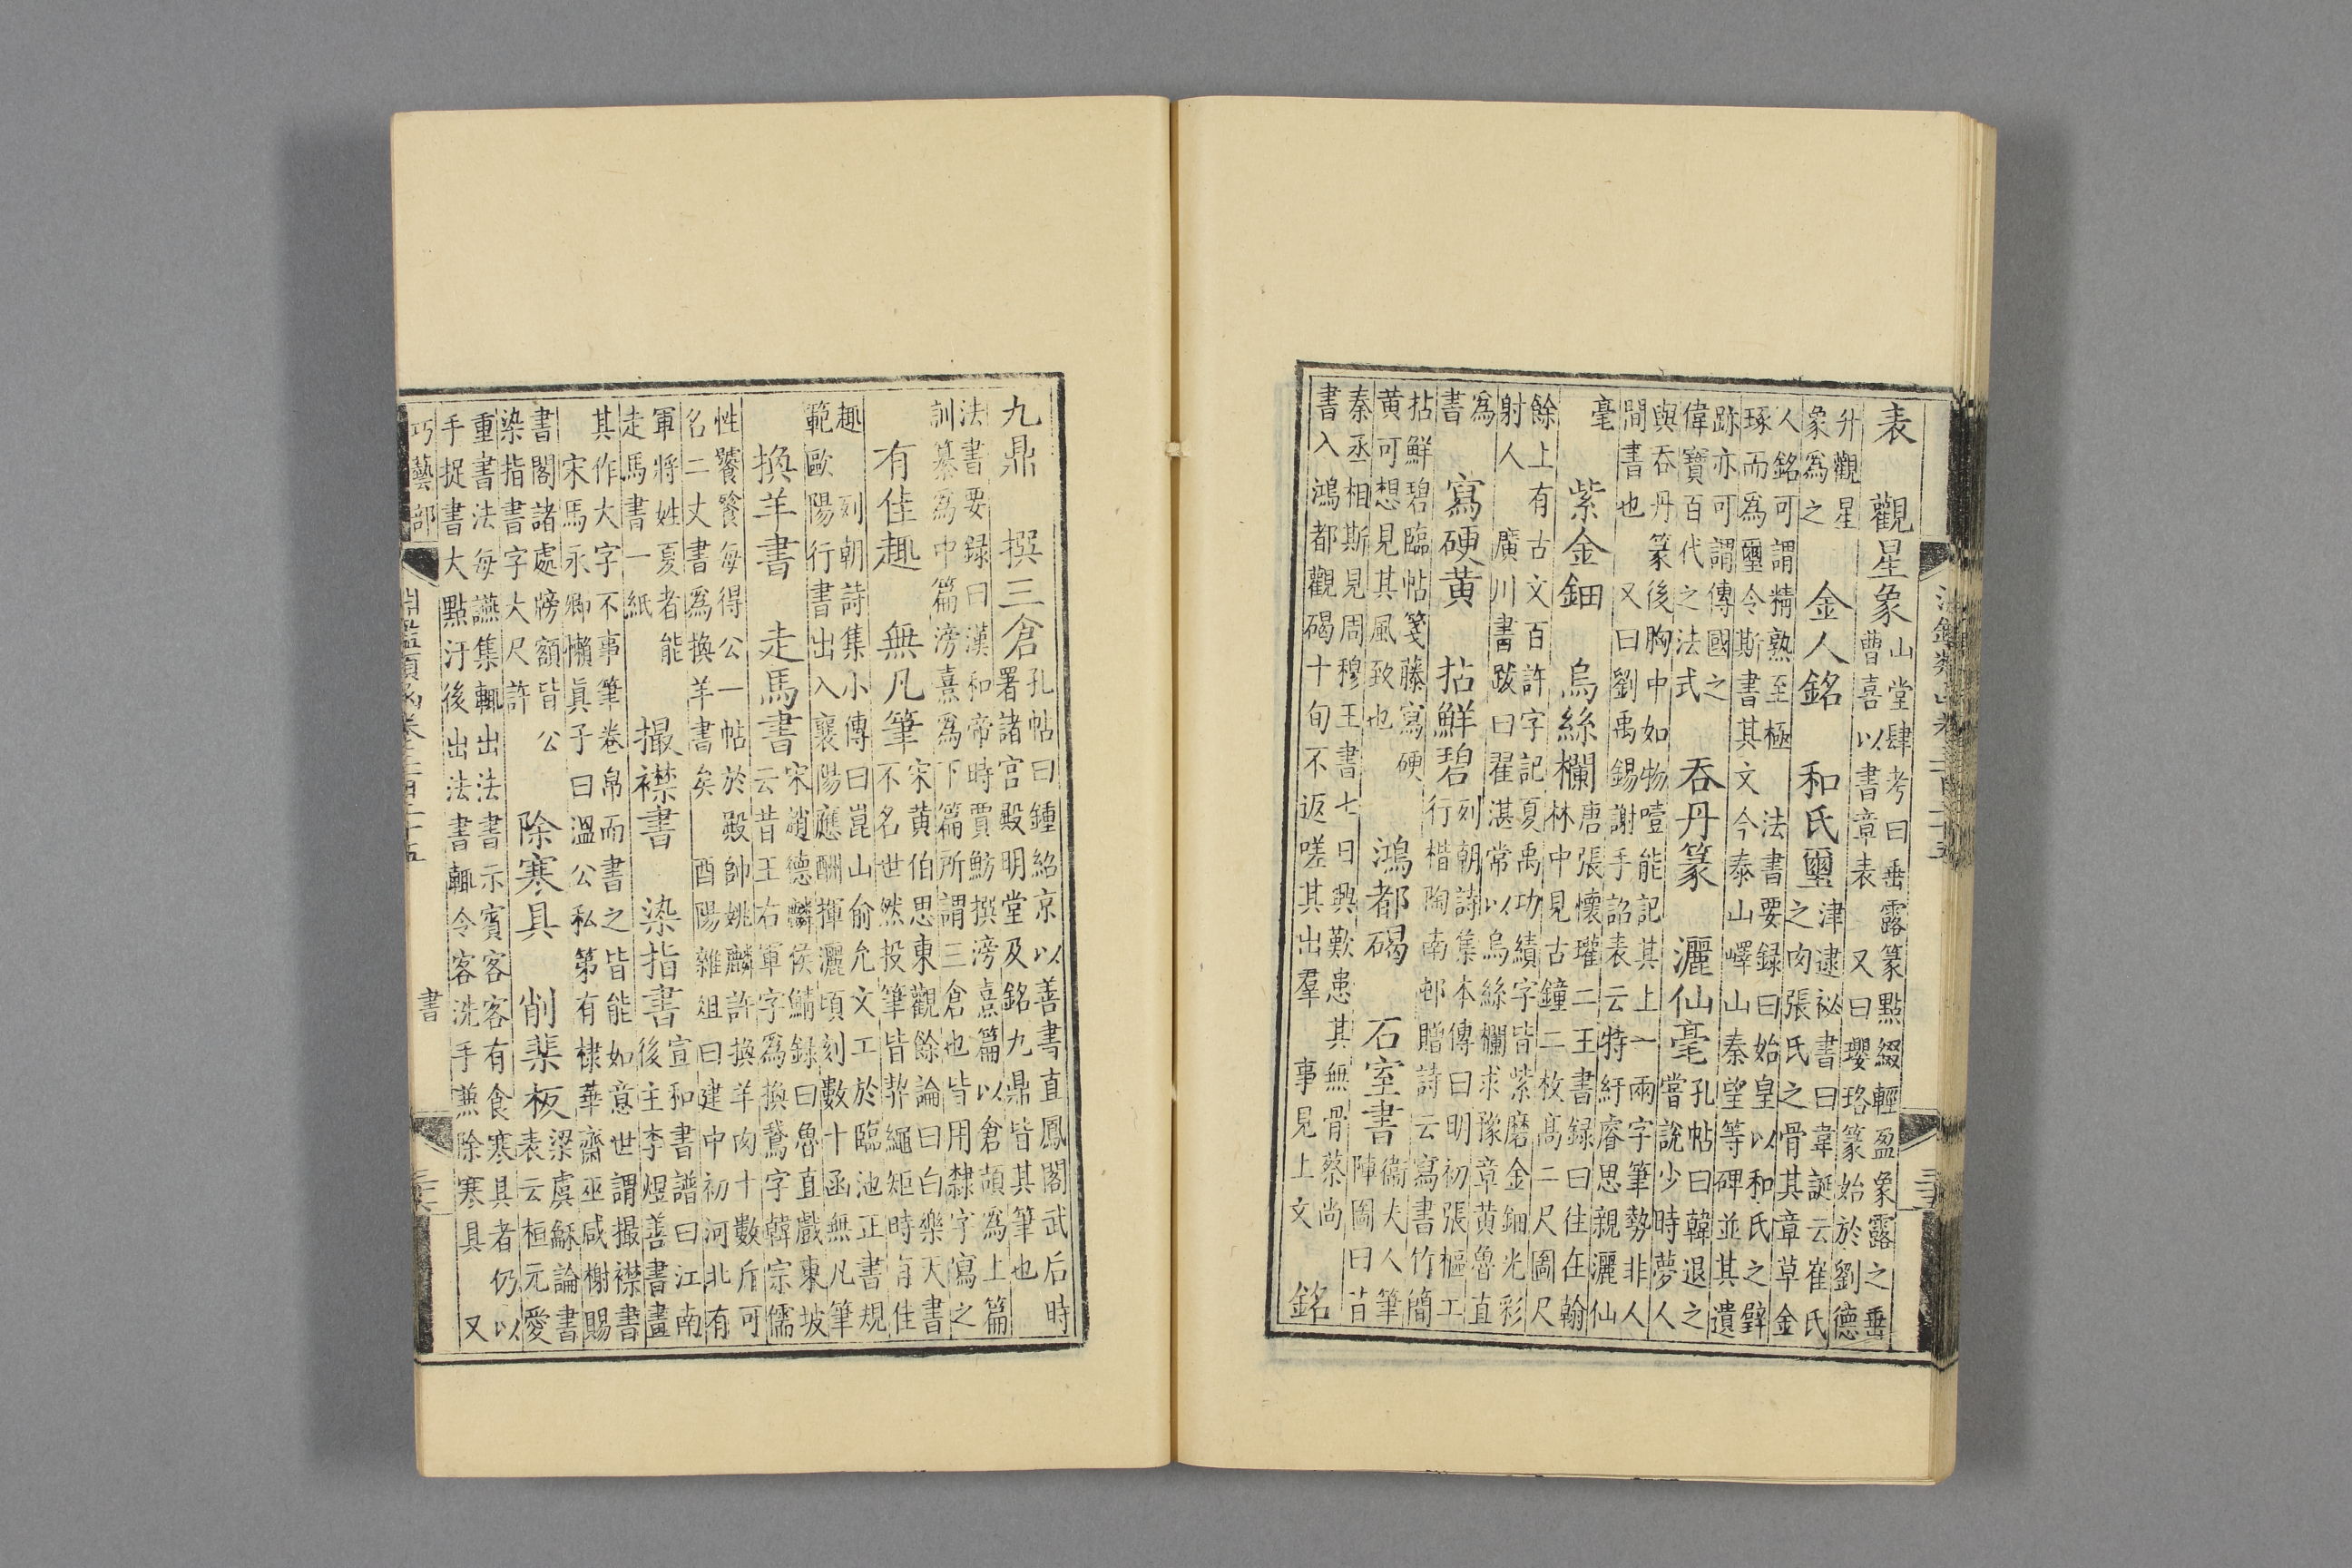 表　觀星象
山堂肆考曰垂露篆點綴輕盈象露之垂
曹喜以書章表　又曰瓔珞篆始於劉德
升觀星
象為之
金人銘　和氏璽
津逮祕書曰韋誕云崔氏
之肉張氏之骨其章草金
人銘可謂精熟至極　法書要録曰始皇以和氏之璧
琢而為璽令斯書其文今泰山嶧山秦望等碑並其遺
跡亦可謂傳國之
偉寶百代之法式
吞丹篆　灑仙毫
孔帖曰韓退之
當說少時夢人
與吞丹篆後胸中如物噎能記其上一兩字筆勢非人
間書也　又曰劉禹錫謝手詔表云特紆睿思親灑仙
毫
紫金鈿　烏絲欄
唐張懷瓘二王書録曰往在翰
林中見古鐘二枚高二尺圖尺
餘上有古文百許字記夏禹功績字皆紫磨金鈿光彩
射人　廣川書跋曰翟湛常以烏絲欄求豫章黄魯直
為
書
寫硬黄　拈鮮碧
列朝詩集本傳曰明初張樞工
行楷陶南邨贈詩云寫書竹簡
拈鮮碧臨帖箋藤寫硬
黄可想見其風致也
鴻都碣　石室書
衞夫人筆
陣圖曰昔
秦丞相斯見周穆王書七日興歎患其無骨蔡尚
書入鴻都觀碣十旬不返嗟其出羣　事見上文
銘
九鼎　撰三倉
孔帖曰鍾紹京以善書直鳳閣武后時
署諸宫殿明堂及銘九鼎皆其筆也
法書要録曰漢和帝時賈魴撰滂熹篇以倉頡為上篇
訓纂為中篇滂熹為下篇所謂三倉也皆用隸字寫之
有佳趣　無凡筆
宋黄伯思東觀餘論曰白樂天書
不名世然投筆皆契繩矩時有佳
趣　列朝詩集小傳曰崑山俞允文工於臨池正書規
範歐陽行書出入襄陽應酬揮灑頃刻數十函無凡筆
換羊書　走馬書
宋趙德麟侯鯖録曰魯直戲東坡
云昔王右軍字為換鵞字韓宗儒
性饕餮每得公一帖於殿帥姚麟許換羊肉十數斤可
名二丈書為換羊書矣　酉陽雜俎曰建中初河北有
軍將姓夏者能
走馬書一紙
撮襟書　染指書
宣和書譜曰江南
後主李煜善書畫
其作大字不事筆卷帛而書之皆能如意世謂撮襟書
宋馬永卿懶眞子曰溫公私第有棣華齋巫咸榭賜
書閣諸處牓額皆公
染指書字大尺許
除寒具　削棐板
梁虞龢論書
表云桓元愛
重書法每讌集輒出法書示賓客客有食寒具者仍以
手捉書大點汙後出法書輒令客洗手兼除寒具　又
巧藝部
淵鑑類函卷三百二十五
書